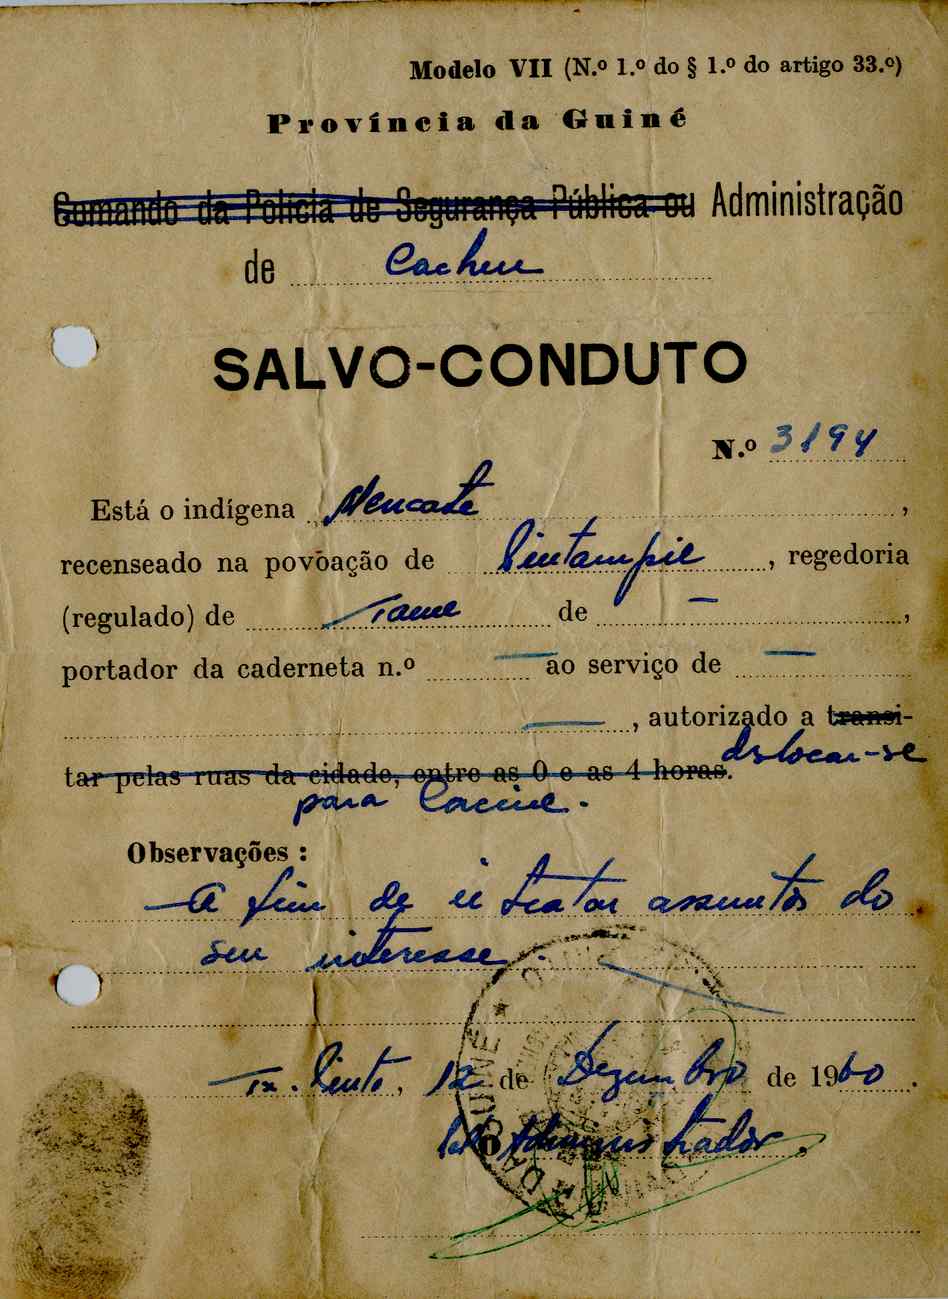 Modelo VII (N.º 1.º do § 1.º do artigo 33.º)
Província da Guiné
Comando da Polícia de Segurança Pública ou Administração
de Cacheu
SALVO-CONDUTO
N.º 3194
Está o indígena Nencate,
recenseado na povoação de, regedoria
(regulado) de Tame de —,
portador da caderneta n.º — ao serviço de —
—, autorizado a transi-
tar pelas ruas da cidade, entre as 0 e as 4 horas. deslocar-se
para Cacine.
Observações:
A fim de ir tratar assuntos do
seu interesse.
12 de Dezembro de 1960.
Administrador,